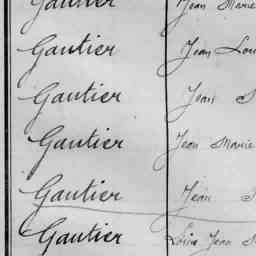 Gautier Jean Marie
Gautier Jean Lou
Gautier Jean
Gautier Jean Marie
Gautier Jean
Gautier Jean